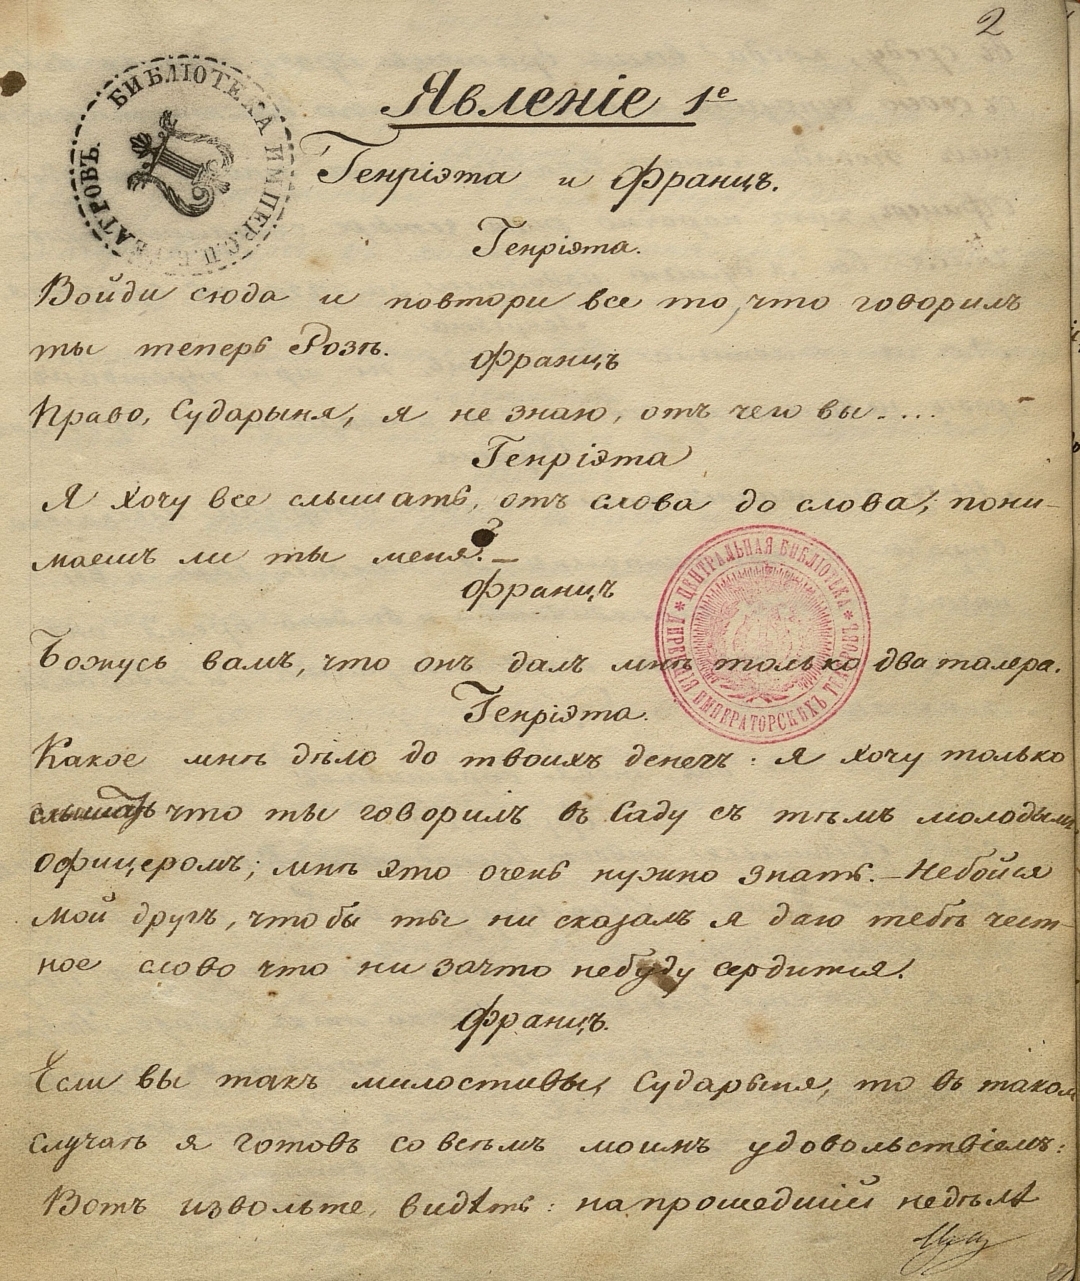 2
БИБЛІОТЕКА ИМПЕР.С.П.Б. ТЕАТРОВЪ.
Явленіе 1е
Генріэта и Францъ.
Генріэта.
Войди сюда и повтори все то, что говорилъ
ты теперь Розѣ.
Францъ
Право, Сударыня, я не знаю, отъ чего вы....
Генріэта
Я хочу все слышать, отъ слова до слова, пони-
маешъ ли ты меня? —
Францъ
Божусь вамъ, что онъ далъ мнѣ только два талера.
ЦЕНТРАЛЬНАЯ БИБЛІОТЕКА * ДИРЕКЦІИ ИМПЕРАТОРСКИХЪ ТЕАТРОВЪ *
Генріэта.
Какое мнѣ дѣло до твоихъ денегъ: я хочу только
слышать что ты говорилъ въ Саду съ тѣмъ молодымъ
офицеромъ; мнѣ это очень нужно знать. — Небойся
мой другъ, чтобы ты ни сказалъ я даю тебѣ чест-
ное слово что ни зачто небуду сердится.
Францъ.
Если вы такъ милостивы, Сударыня, то въ таком
случаѣ я готовъ со всѣмъ моимъ удовольствіемъ:
Вотъ извольте, видѣть: на прошедшій недѣлѣ